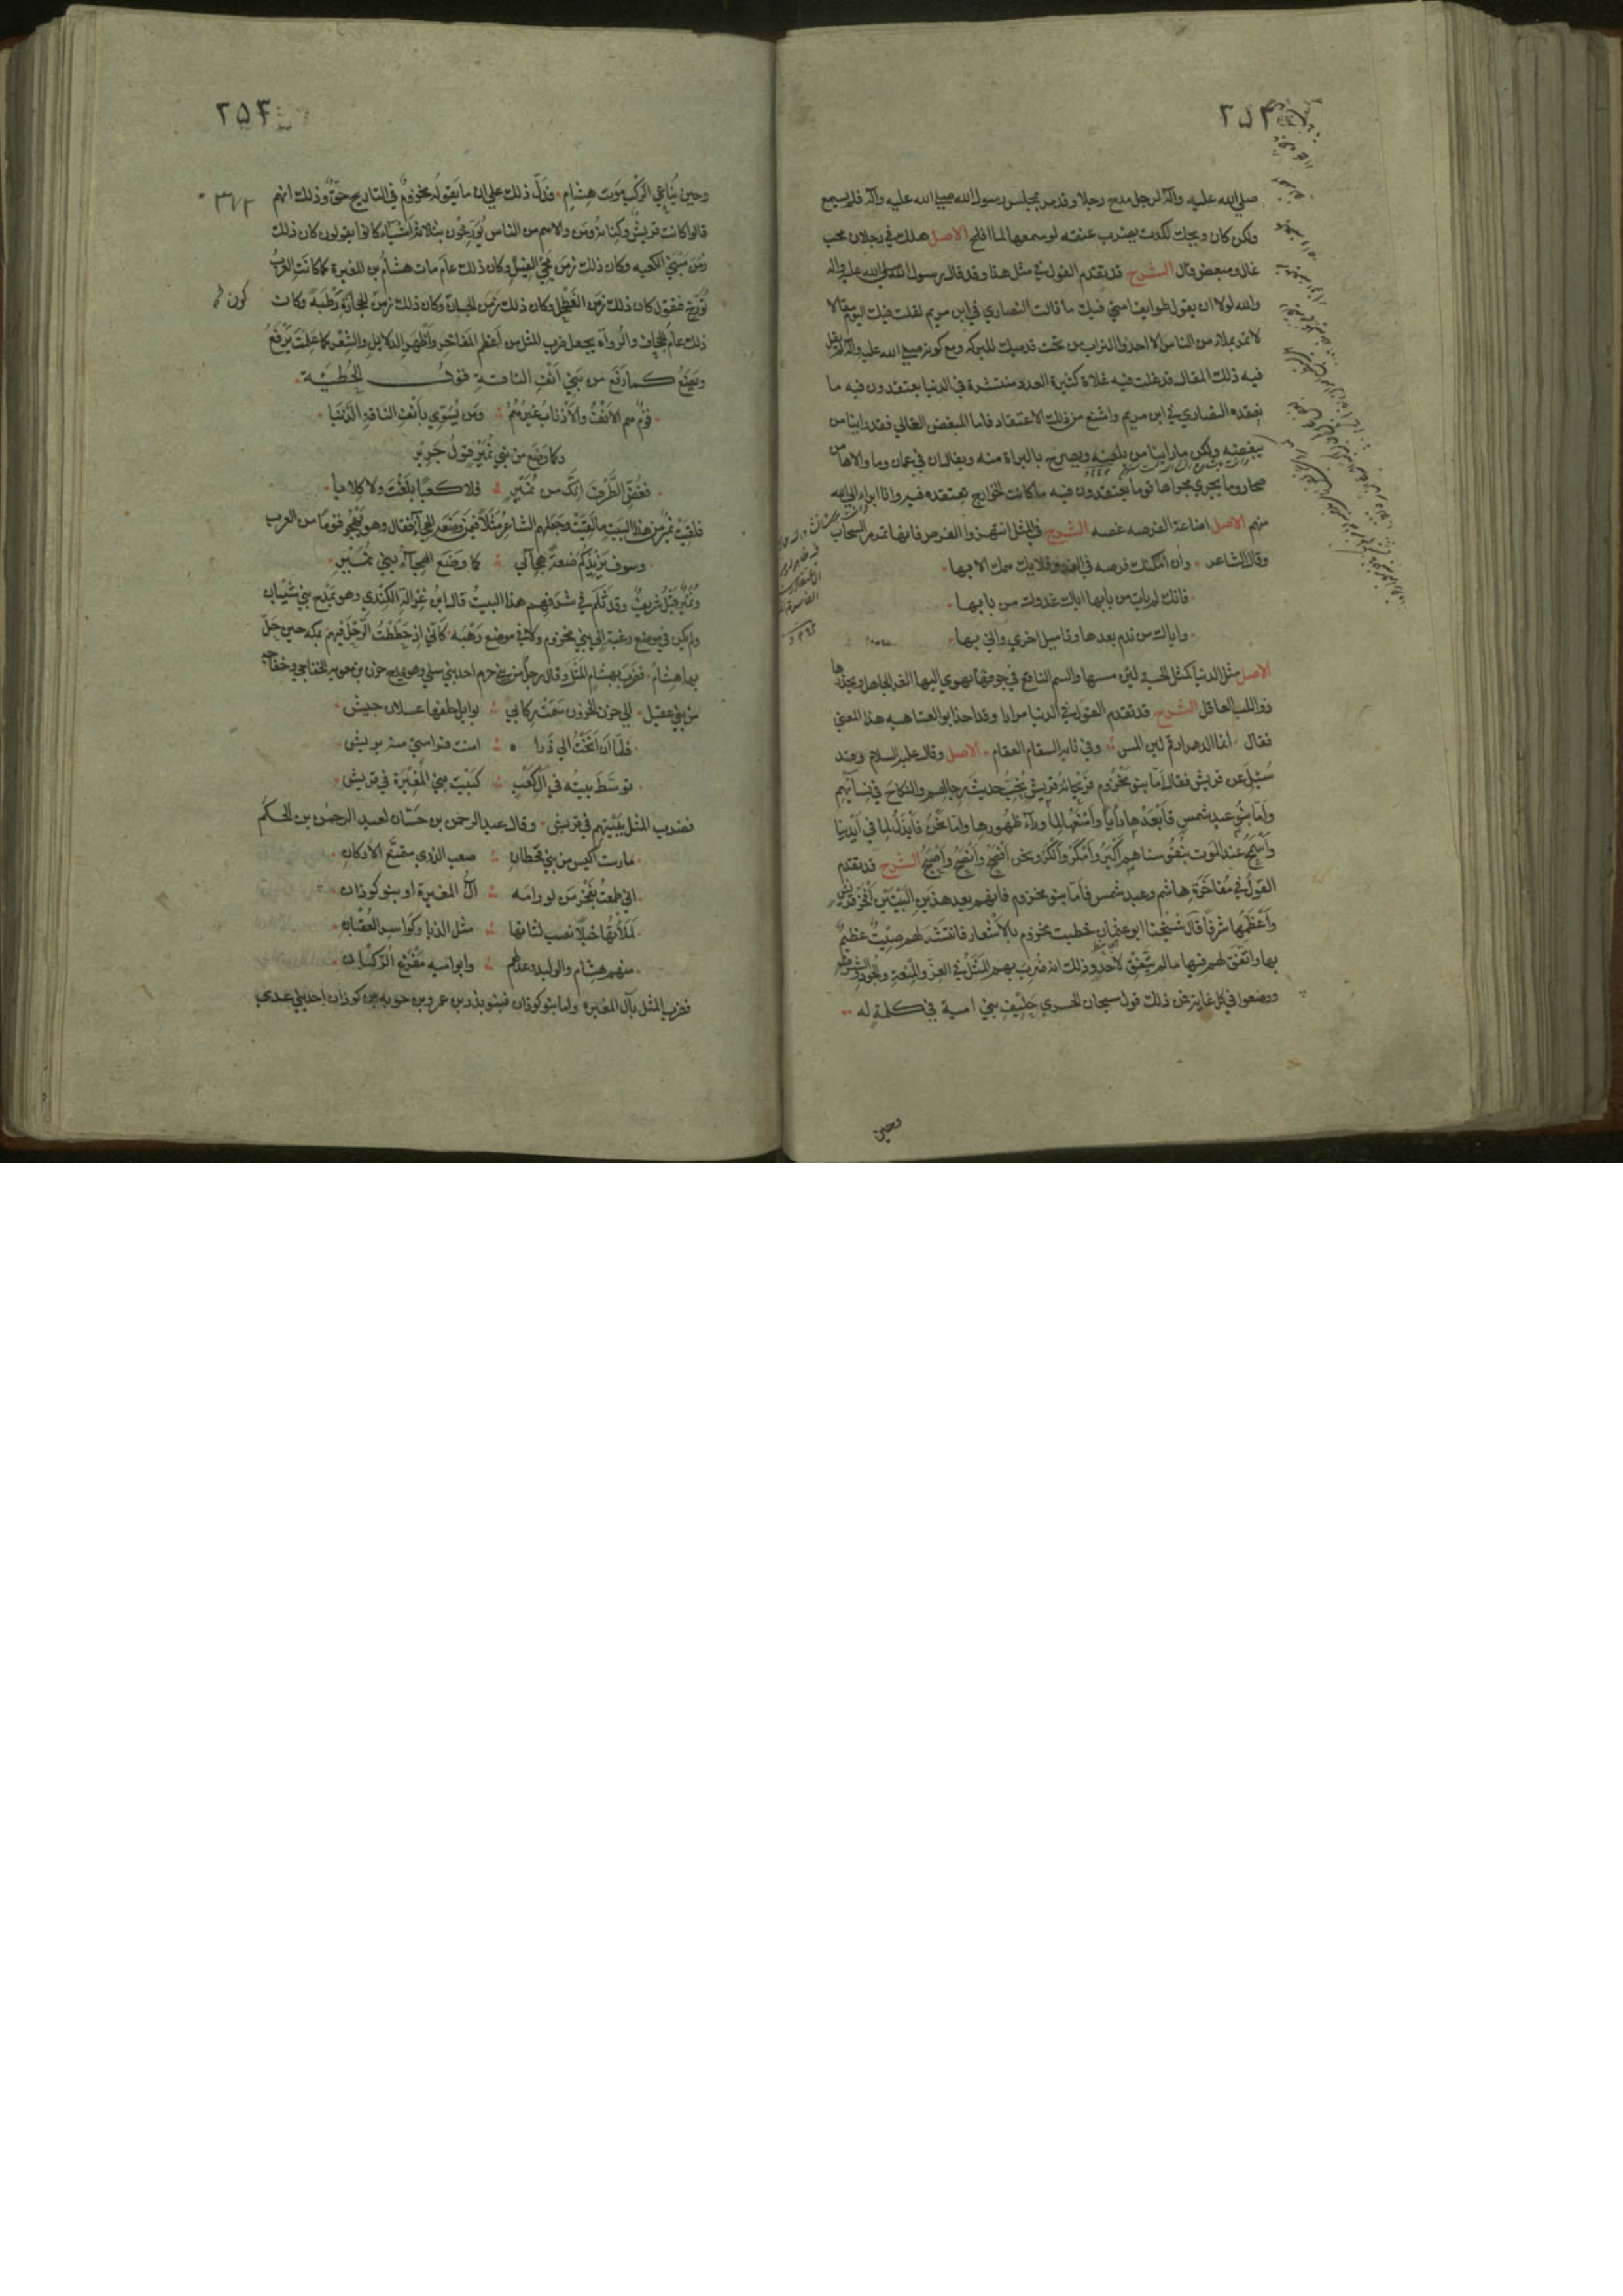 ٢٥٤
صلي الله عليه وآله لرجل مدح رجلا وقد مر بمجلس رسول الله صلي الله عليه وآله فلم يسمع
ولكن كان ويحك لكدت يضرب عنقه لو سمعها لما افلح الاصل هلك في رجلان محب
غال ومبغض قال الشرح قد تقدم القول في مثل هذا وقد قال رسول الله صلي الله عليه واله
والله لولا ان يقول طوايف امتي فيك ما قالت النصاري في ابن مريم لقلت فيك اليوم مقالا
لا تمر بملاء من الناس الا اخذوا التراب من تحت قدميك للبركه ومع كونه صلي الله عليه وآله لم يقل
فيه ذلك المقال فقد غلت فيه غلاة كثيرة العدد منتشرة في الدنيا يعتقدون فيه ما
يعتقده النصاري في ابن مريم واشنع من ذلك الاعتقاد فاما المبغض القالي فقد راينا من
يبغضه ولكن ما راينا من يلعنه ويصرح بالبراة منه ويقال ان في عمان وما والاها من
صحار وما يجري مجراها قوما يعتقدون فيه ما كانت الخوارج تعتقده فيه وانا ابراء الي الله
منهم الاصل اضاعة الفرصه غصه الشرح في المثل انتهزوا الفرص فانها تمر مر السحاب
وقال الشاعر وان امكنت فرصه في العدو فلا يك همك الا بها
فانك لم يات من بابها اتاك عدوك من بابها
واياك من ندم بعدها وتاميل اخري واني بها
الاصل مثل الدنيا كمثل الحية لين مسها والسم الناقع في جوفها يهوي اليها الغر الجاهل ويحذرها
ذو اللب العاقل الشرح قد تقدم القول في الدنيا مرارا وقد اخذ ابو العتاهيه هذا المعني
فقال انما الدهر ارقم لين المس وفي نابه السقام العقام الاصل وقال عليه السلام وقد
سُئِلَ عن قريش فقال اما بنو مخزوم فريحانة قريش تحب حديث رجالهم والنكاح في نسآئهم
واما بنو عبد شمس فابعدها رأيا وامنعها لما ورآء ظهورها واما نحن فابذل لما في ايدينا
واسمح عند الموت بنفوسنا هم اكثر وامكر وانكر ونحن افصح وانصح واصبح الشرح قد تقدم
القول في مفاخرة هاشم وعبد شمس فاما بنو مخزوم فانهم بعد هذين البيتين افخر قريش
واعظمها شرفا قال شيخنا ابو عثمان حظيت مخزوم بالاشعار فانتشر لهم صيت عظيم
بها واتفق لهم فيها ما لم يتفق لاحد وذلك انه ضُرب بهم المثل في العز والمنعة والجود والشرف
ووضعوا في كل غاية فمن ذلك قول سيحان الجسري حليف بني امية في كلمة له
وحين
٢٥٤
وحين يُناغي الركبُ موت هشام فدل ذلك علي ان ما يقوله مخزوم في التاريخ حق وذلك انهم
قالوا كانت قريش وكنانة ومن والاهم من الناس يُؤرّخون بثلاثة اشيآء كانوا يقولون كان ذلك
زمن مبني الكعبه وكان ذلك زمن مجئ الفيل وكان ذلك عام مات هشام بن المغيرة كما كانت العرب
تؤرخ فتقول كان ذلك زمن الفطحل وكان ذلك زمن الحيان وكان ذلك زمن الحجارة رطبة وكان
ذلك عام الجحاف والرواة يجعل ضرب المثل من اعظم المفاخر واظهر الدلايل والشعر كما علمت يرفع
ويضع كما رفع من بني انف الناقة قول الحُطَيئة
قوم هم الانف والاذناب غيرهُم ومن يُسوّي بانف الناقة الذَّنَبا
وكما وضع من بني نُمَير قول جرير
فغُضّ الطرف انك من نُمَير فلا كعبًا بلغت ولا كلابا
فلقيت نمير من هذا البيت ما لقيت وجعلهم الشاعر مثلا فيمن وضعه الهجآء فقال وهو يهجو قوما من العرب
وسوف يزيدكم ضعةً هجآئي كما وضع الهجآء بني نمير
ونمير قبيل شريف وقد ثلم في شرفهم هذا البيت قال ابن غزالة الكندي وهو يمدح بني شيبان
ولم يكن في موضع رغبة الي بني مخزوم ولا في موضع رهبة كاني اذ حططت الرحل فيهم بمكة حين حل
بها هشام فضرب بهشام المثل وقال رجل من بني حزم احد بني سلمي وهو يمدح حزن بن معويه الخفاجي وخفاجه
من بني عقيل الي حزن الحزون سمت ركابي بوابل خلفها عسلان جيش
فلما ان انخت الي ذرا ه امنت فراشني منه بريش
توسط بيته في آل كعب كبيت بني المغيرة في قريش
فضرب المثل ببيتهم في قريش وقال عبد الرحمن بن حسان لعبد الرحمن بن الحكم
مارست اكيس من بني قحطان صعب الذري متمنع الاركان
اني طمعت بفخر من لو رامه آل المغيرة او بنو كوذان
لملأتها خيلا تضب لثاتها مثل الدبا وكواسر العقبان
منهم هشام والوليد وعدلهم وابو اميه مفزع الركبان
فضرب المثل بآل المغيره واما بنو كوذان فبنو بدر بن عمرو بن حويه بن كوذان احد بني عدي